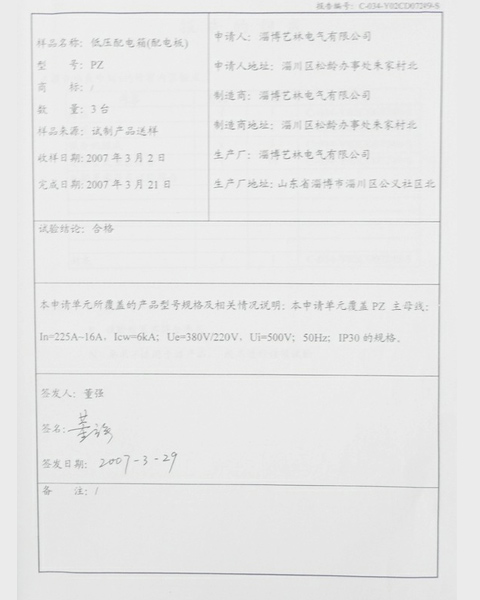 报告编号：C-034-Y02CD07289-S
样品名称：低压配电箱(配电板)
型 号：PZ
商 标：/
数 量：3台
样品来源：试制产品送样
收样日期：2007年3月2日
完成日期：2007年3月21日
申请人：淄博艺林电气有限公司
申请人地址：淄川区松龄办事处朱家村北
制造商：淄博艺林电气有限公司
制造商地址：淄川区松龄办事处朱家村北
生产厂：淄博艺林电气有限公司
生产厂地址：山东省淄博市淄川区公义社区北
试验结论：合格
本申请单元所覆盖的产品型号规格及相关情况说明：本申请单元覆盖PZ 主母线：
In=225A~16A，Icw=6kA；Ue=380V/220V，Ui=500V；50Hz；IP30的规格。
签发人：董强
签名：董强
签发日期：2007-3-29
备 注：/